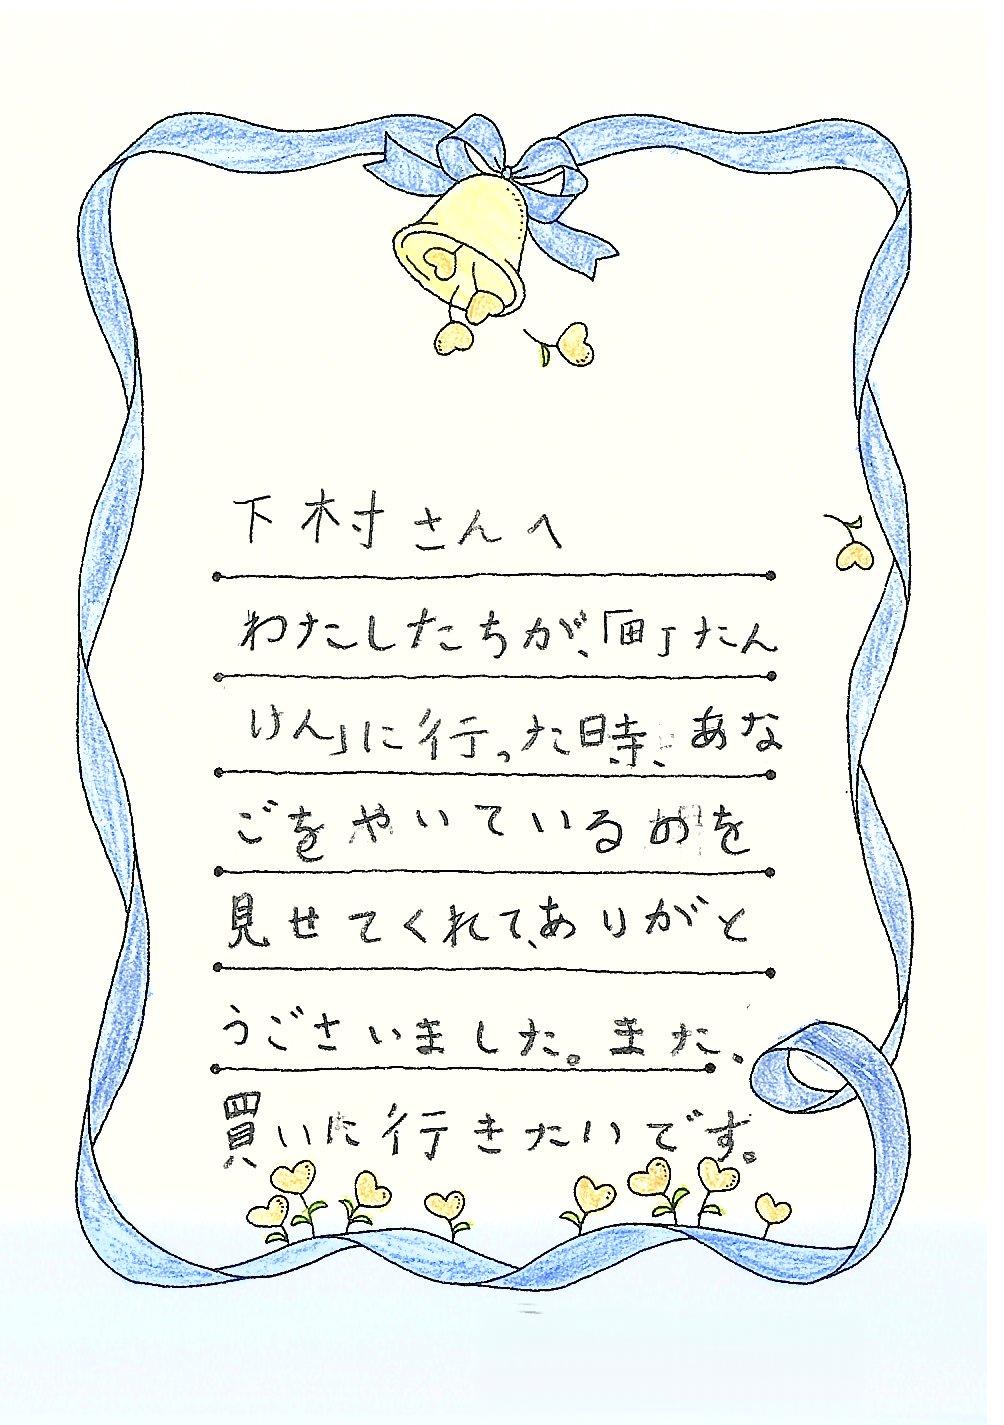 下村さんへ
わたしたちが、「町たん
けん」に行った時、あな
ごをやいているのを
見せてくれて、ありがと
うございました。また、
買いに行きたいです。